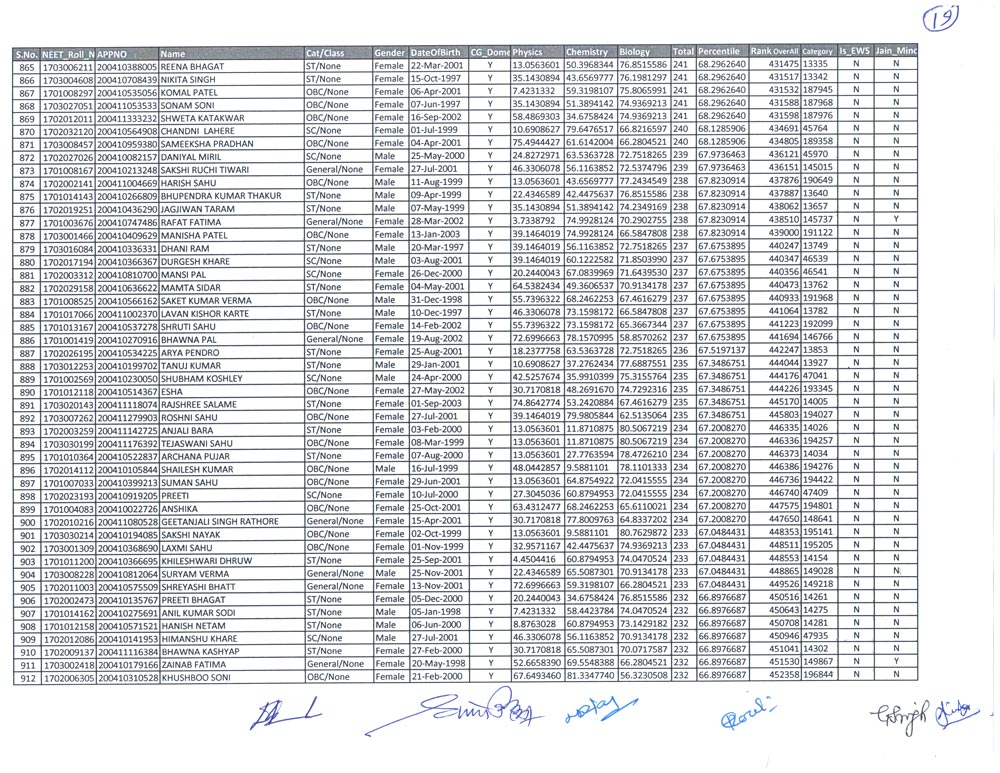 19
S.No. NEET_Roll_N APPNO Name Cat/Class Gender DateOfBirth CG_Dome Physics Chemistry Biology Total Percentile Rank OverAll Category Is_EWS Jain_Minc
865 1703006211 200410388005 REENA BHAGAT ST/None Female 22-Mar-2001 Y 13.0563601 50.3968344 76.8515586 241 68.2962640 431475 13335 N N
866 1703004608 200410708439 NIKITA SINGH ST/None Female 15-Oct-1997 Y 35.1430894 43.6569777 76.1981297 241 68.2962640 431517 13342 N N
867 1701008297 200410535056 KOMAL PATEL OBC/None Female 06-Apr-2001 Y 7.4231332 59.3198107 75.8065991 241 68.2962640 431532 187945 N N
868 1703027051 200411053533 SONAM SONI OBC/None Female 07-Jun-1997 Y 35.1430894 51.3894142 74.9369213 241 68.2962640 431588 187968 N N
869 1702012011 200411333232 SHWETA KATAKWAR OBC/None Female 16-Sep-2002 Y 58.4869303 34.6758424 74.9369213 241 68.2962640 431598 187976 N N
870 1702032120 200410564908 CHANDNI LAHERE SC/None Female 01-Jul-1999 Y 10.6908627 79.6476517 66.8216597 240 68.1285906 434691 45764 N N
871 1703008457 200410959380 SAMEEKSHA PRADHAN OBC/None Female 04-Apr-2001 Y 75.4944427 61.6142004 66.2804521 240 68.1285906 434805 189358 N N
872 1702027026 200410082157 DANIYAL MIRIL SC/None Male 25-May-2000 Y 24.8272971 63.5363728 72.7518265 239 67.9736463 436121 45970 N N
873 1701008167 200410213248 SAKSHI RUCHI TIWARI General/None Female 27-Jul-2001 Y 46.3306078 56.1163852 72.5374796 239 67.9736463 436151 145015 N N
874 1702002141 200411004669 HARISH SAHU OBC/None Male 11-Aug-1999 Y 13.0563601 43.6569777 77.2434549 238 67.8230914 437876 190649 N N
875 1701014143 200410266809 BHUPENDRA KUMAR THAKUR ST/None Male 09-Apr-1999 Y 22.4346589 42.4475637 76.8515586 238 67.8230914 437887 13640 N N
876 1702019251 200410436290 JAGJIWAN TARAM ST/None Male 07-May-1999 Y 35.1430894 51.3894142 74.2349169 238 67.8230914 438062 13657 N N
877 1701003676 200410747486 RAFAT FATIMA General/None Female 28-Mar-2002 Y 3.7338792 74.9928124 70.2902755 238 67.8230914 438510 145737 N Y
878 1703001466 200410409629 MANISHA PATEL OBC/None Female 13-Jan-2003 Y 39.1464019 74.9928124 66.5847808 238 67.8230914 439000 191122 N N
879 1703016084 200410336331 DHANI RAM ST/None Male 20-Mar-1997 Y 39.1464019 56.1163852 72.7518265 237 67.6753895 440247 13749 N N
880 1702017194 200410366367 DURGESH KHARE SC/None Male 03-Aug-2001 Y 39.1464019 60.1222582 71.8503990 237 67.6753895 440347 46539 N N
881 1702003312 200410810700 MANSI PAL SC/None Female 26-Dec-2000 Y 20.2440043 67.0839969 71.6439530 237 67.6753895 440356 46541 N N
882 1702029158 200410636622 MAMTA SIDAR ST/None Female 04-May-2001 Y 64.5382434 49.3606537 70.9134178 237 67.6753895 440473 13762 N N
883 1701008525 200410566162 SAKET KUMAR VERMA OBC/None Male 31-Dec-1998 Y 55.7396322 68.2462253 67.4616279 237 67.6753895 440933 191968 N N
884 1701017066 200411002370 LAVAN KISHOR KARTE ST/None Male 10-Dec-1997 Y 46.3306078 73.1598172 66.5847808 237 67.6753895 441064 13782 N N
885 1701013167 200410537278 SHRUTI SAHU OBC/None Female 14-Feb-2002 Y 55.7396322 73.1598172 65.3667344 237 67.6753895 441223 192099 N N
886 1701001419 200410270916 BHAWNA PAL General/None Female 19-Aug-2002 Y 72.6996663 78.1570995 58.8570262 237 67.6753895 441694 146766 N N
887 1702026195 200410534225 ARYA PENDRO ST/None Female 25-Aug-2001 Y 18.2377758 63.5363728 72.7518265 236 67.5197137 442247 13853 N N
888 1703012253 200410199702 TANUJ KUMAR ST/None Male 29-Jan-2001 Y 10.6908627 37.2762434 77.6887551 235 67.3486751 444044 13927 N N
889 1701002569 200410230050 SHUBHAM KOSHLEY SC/None Male 24-Apr-2000 Y 42.5257674 35.9910399 75.3155764 235 67.3486751 444176 47041 N N
890 1701012118 200410514367 ESHA OBC/None Female 27-May-2002 Y 30.7170818 48.2691670 74.7292316 235 67.3486751 444226 193345 N N
891 1703020143 200411118074 RAJSHREE SALAME ST/None Female 01-Sep-2003 Y 74.8642774 53.2420884 67.4616279 235 67.3486751 445170 14005 N N
892 1703007262 200411279903 ROSHNI SAHU OBC/None Female 27-Jul-2001 Y 39.1464019 79.9805844 62.5135064 235 67.3486751 445803 194027 N N
893 1702003259 200411142725 ANJALI BARA ST/None Female 03-Feb-2000 Y 13.0563601 11.8710875 80.5067219 234 67.2008270 446335 14026 N N
894 1703030199 200411176392 TEJASWANI SAHU OBC/None Female 08-Mar-1999 Y 13.0563601 11.8710875 80.5067219 234 67.2008270 446336 194257 N N
895 1701010364 200410522837 ARCHANA PUJAR ST/None Female 07-Aug-2000 Y 13.0563601 27.7763594 78.4726210 234 67.2008270 446373 14034 N N
896 1702014112 200410105844 SHAILESH KUMAR OBC/None Male 16-Jul-1999 Y 48.0442857 9.5881101 78.1101333 234 67.2008270 446386 194276 N N
897 1701007033 200410399213 SUMAN SAHU OBC/None Female 29-Jun-2001 Y 13.0563601 64.8754922 72.0415555 234 67.2008270 446736 194422 N N
898 1702023193 200410919205 PREETI SC/None Female 10-Jul-2000 Y 27.3045036 60.8794953 72.0415555 234 67.2008270 446740 47409 N N
899 1701004083 200410022726 ANSHIKA OBC/None Female 25-Oct-2001 Y 63.4312477 68.2462253 65.6110021 234 67.2008270 447575 194801 N N
900 1702010216 200411080528 GEETANJALI SINGH RATHORE General/None Female 15-Apr-2001 Y 30.7170818 77.8009763 64.8337202 234 67.2008270 447650 148641 N N
901 1703030214 200410194085 SAKSHI NAYAK OBC/None Female 02-Oct-1999 Y 13.0563601 9.5881101 80.7629872 233 67.0484431 448353 195141 N N
902 1703001309 200410368690 LAXMI SAHU OBC/None Female 01-Nov-1999 Y 32.9571167 42.4475637 74.9369213 233 67.0484431 448511 195205 N N
903 1701011200 200410366695 KHILESHWARI DHRUW ST/None Female 25-Sep-2001 Y 4.4504416 60.8794953 74.0470524 233 67.0484431 448553 14154 N N
904 1703008228 200410812064 SURYAM VERMA General/None Male 25-Nov-2001 Y 22.4346589 65.5087301 70.9134178 233 67.0484431 448865 149028 N N
905 1702011003 200410575509 SHREYASHI BHATT General/None Female 13-Nov-2001 Y 72.6996663 59.3198107 66.2804521 233 67.0484431 449526 149218 N N
906 1702002473 200410135767 PREETI BHAGAT ST/None Female 05-Dec-2000 Y 20.2440043 34.6758424 76.8515586 232 66.8976687 450516 14261 N N
907 1701014162 200410275691 ANIL KUMAR SODI ST/None Male 05-Jan-1998 Y 7.4231332 58.4423784 74.0470524 232 66.8976687 450643 14275 N N
908 1701012158 200410571521 HANISH NETAM ST/None Male 06-Jun-2000 Y 8.8763028 60.8794953 73.1429182 232 66.8976687 450708 14281 N N
909 1702012086 200410141953 HIMANSHU KHARE SC/None Male 27-Jul-2001 Y 46.3306078 56.1163852 70.9134178 232 66.8976687 450946 47935 N N
910 1702009137 200411116384 BHAWNA KASHYAP ST/None Female 27-Feb-2000 Y 30.7170818 65.5087301 70.0717587 232 66.8976687 451041 14302 N N
911 1703002418 200410179166 ZAINAB FATIMA General/None Female 20-May-1998 Y 52.6658390 69.5548388 66.2804521 232 66.8976687 451530 149867 N Y
912 1702006305 200410310528 KHUSHBOO SONI OBC/None Female 21-Feb-2000 Y 67.6493460 81.3347740 56.3230508 232 66.8976687 452358 196844 N N